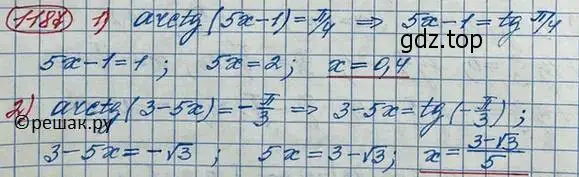 1187 1) arctg (5x-1) = π/4 ⇒ 5x-1 = tg π/4
5x-1=1 ; 5x=2 ; x=0,4
2) arctg (3-5x) = -π/3 ⇒ 3-5x = tg(-π/3) ;
©решак.ру
3-5x=-√3 ; 5x=3-√3 ; x=(3-√3)/5